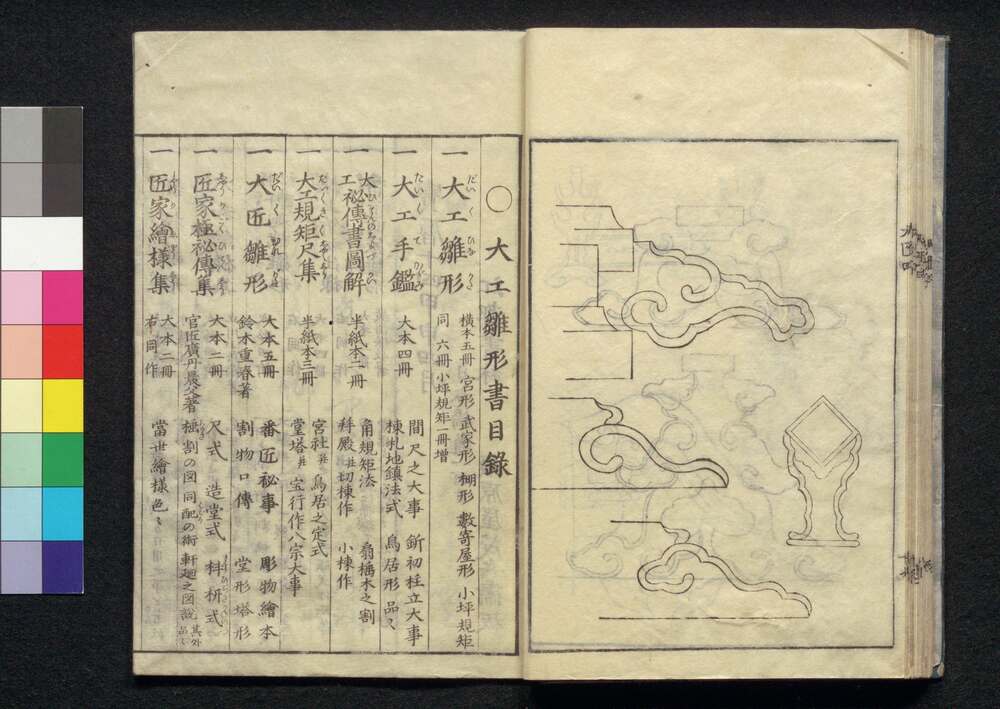 ○大工雛形書目録
一 大工雛形 横本五冊 宮形 武家形 棚形 數寄屋形 小坪規矩
同 六冊 小坪規矩一冊増
一 大工手鑑 大本四冊 間尺之大事 釿初柱立大事
棟札地鎮法式 鳥居形品〻
一 大工祕傳書圖解 半紙本二冊 角規矩法 扇椽木之割
拜殿並切棟作 小棟作
一 大工規矩尺集 半紙本三冊 宮社並鳥居之定式
堂塔並宝行作八宗大事
一 大匠雛形 大本五冊 番匠祕事 彫物繪本
鈴木重春著 割物口傳 堂形塔形
一 匠家極祕傳集 大本二冊 尺式 造堂式 枓栱式
官匠廣丹晨父著 極割の図 同配の術 軒廻之図説 其外品〻
一 匠家繪様集 大本二冊 當世繪様色〻
右同作